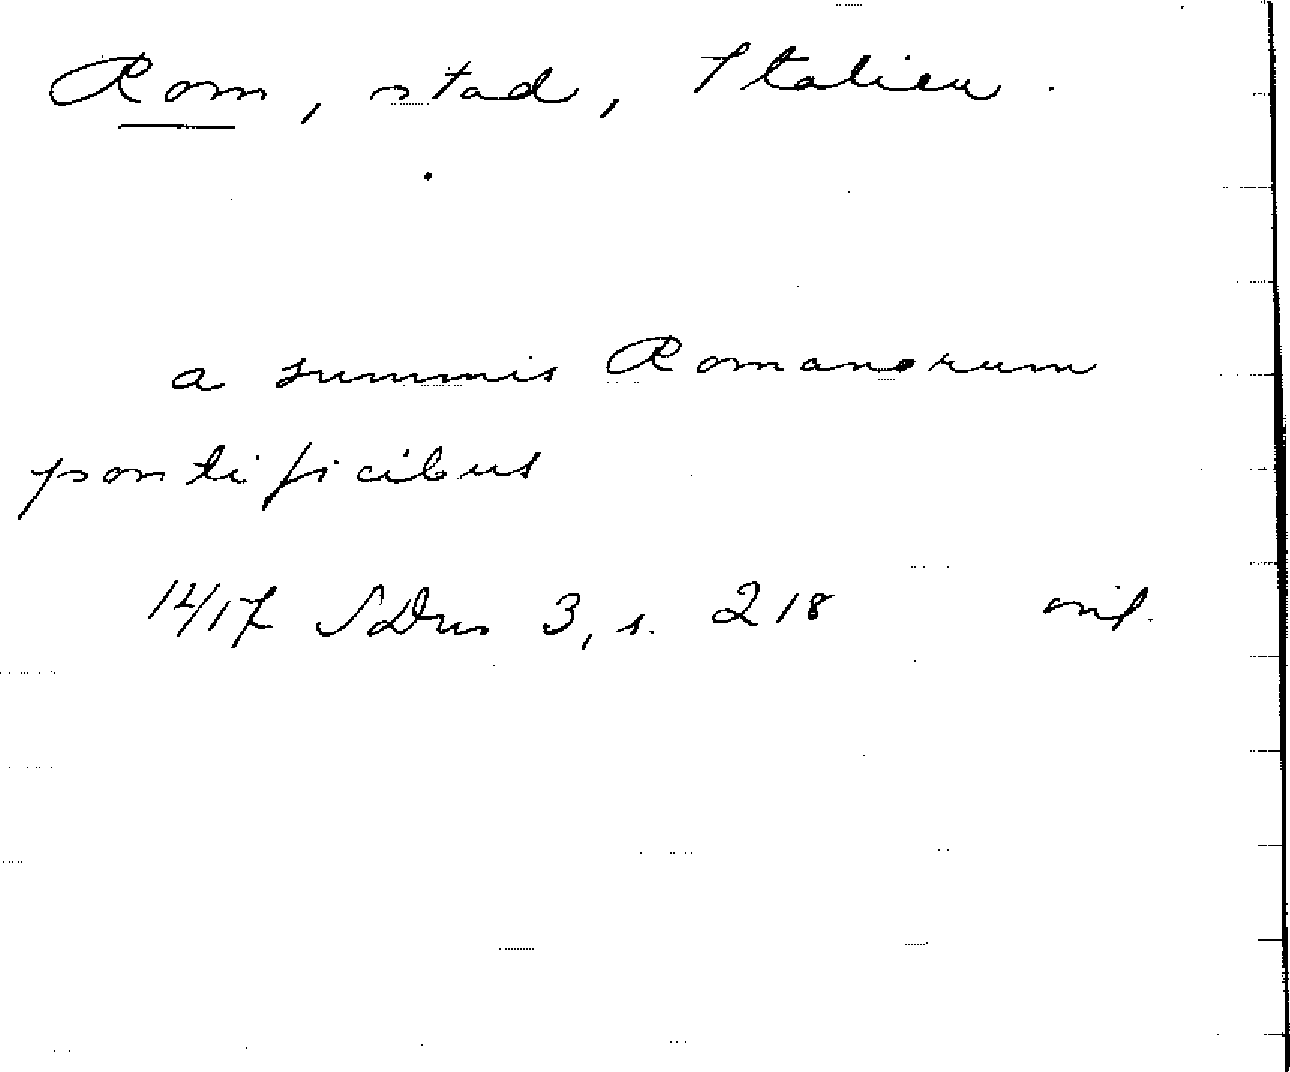 Rom, stad, Italien.
a summis Romanorum
pontificibus
1417 SDns 3, s. 218 orig.